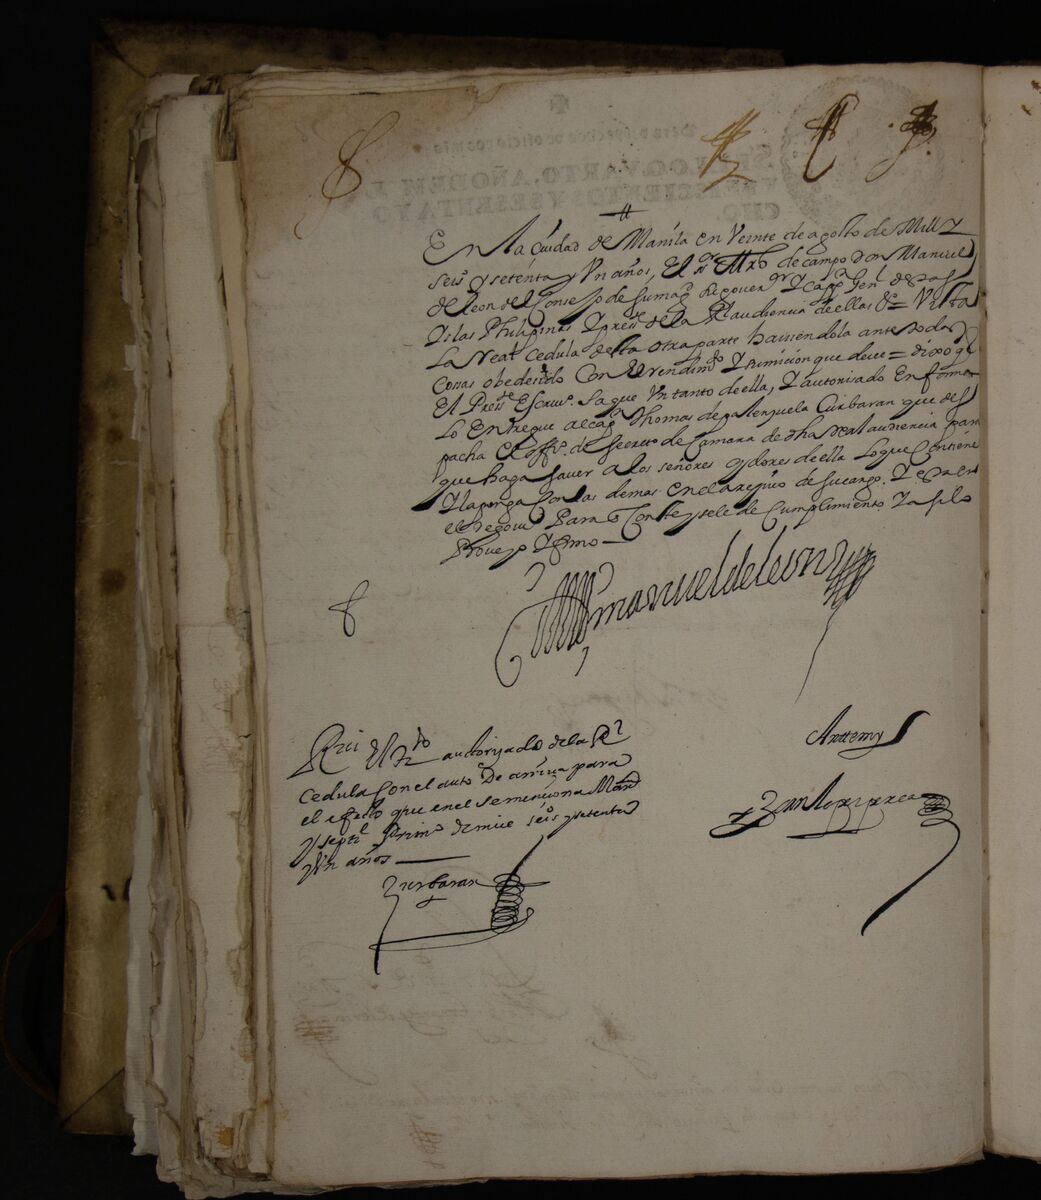 En la Ciudad de Manila en Veinte de agosto de Mill y
seisº y setenta y Un años, El sʳ Mrō de campo Don Manuel
de leon del Consejo de su magᵈ su goverᵒʳ y Capⁿ Genˡ destas
Yslas Philipinas y presᵗᵉ de la Rˡ audiencia de ellas &ª = Vista
La Real Cedula desta otra parte haviendola ante todas
Cosas obedesido Con el rendimᵗᵒ y sumicion que deve = dixo qᵉ
El Presᵗᵉ Escrivº saque Un tanto de ella, y autorisado En forma
Lo Entregue al capⁿ Thomas de palenzuela Curbaran que des
pacha el offº de Secretº de Camara de dha Real audiencia para
que haga saver a los señores oydores de ella Lo que Contiene
y la ponga Con las demas en el archivo de su cargo. y
Para Conste y se le de Cumplimiento y asi lo
Proveyo y firmo —
Dⁿ manuel de leon
Antte my
Juan
Reciví El tᵗᵒ auctorizado de la Rˡ
Cedula Con el autº de arriva para
el efecto que en el se menciona Manª
y septᵉ primº de mill seisº y setenta y
Un años —
Zurbaran